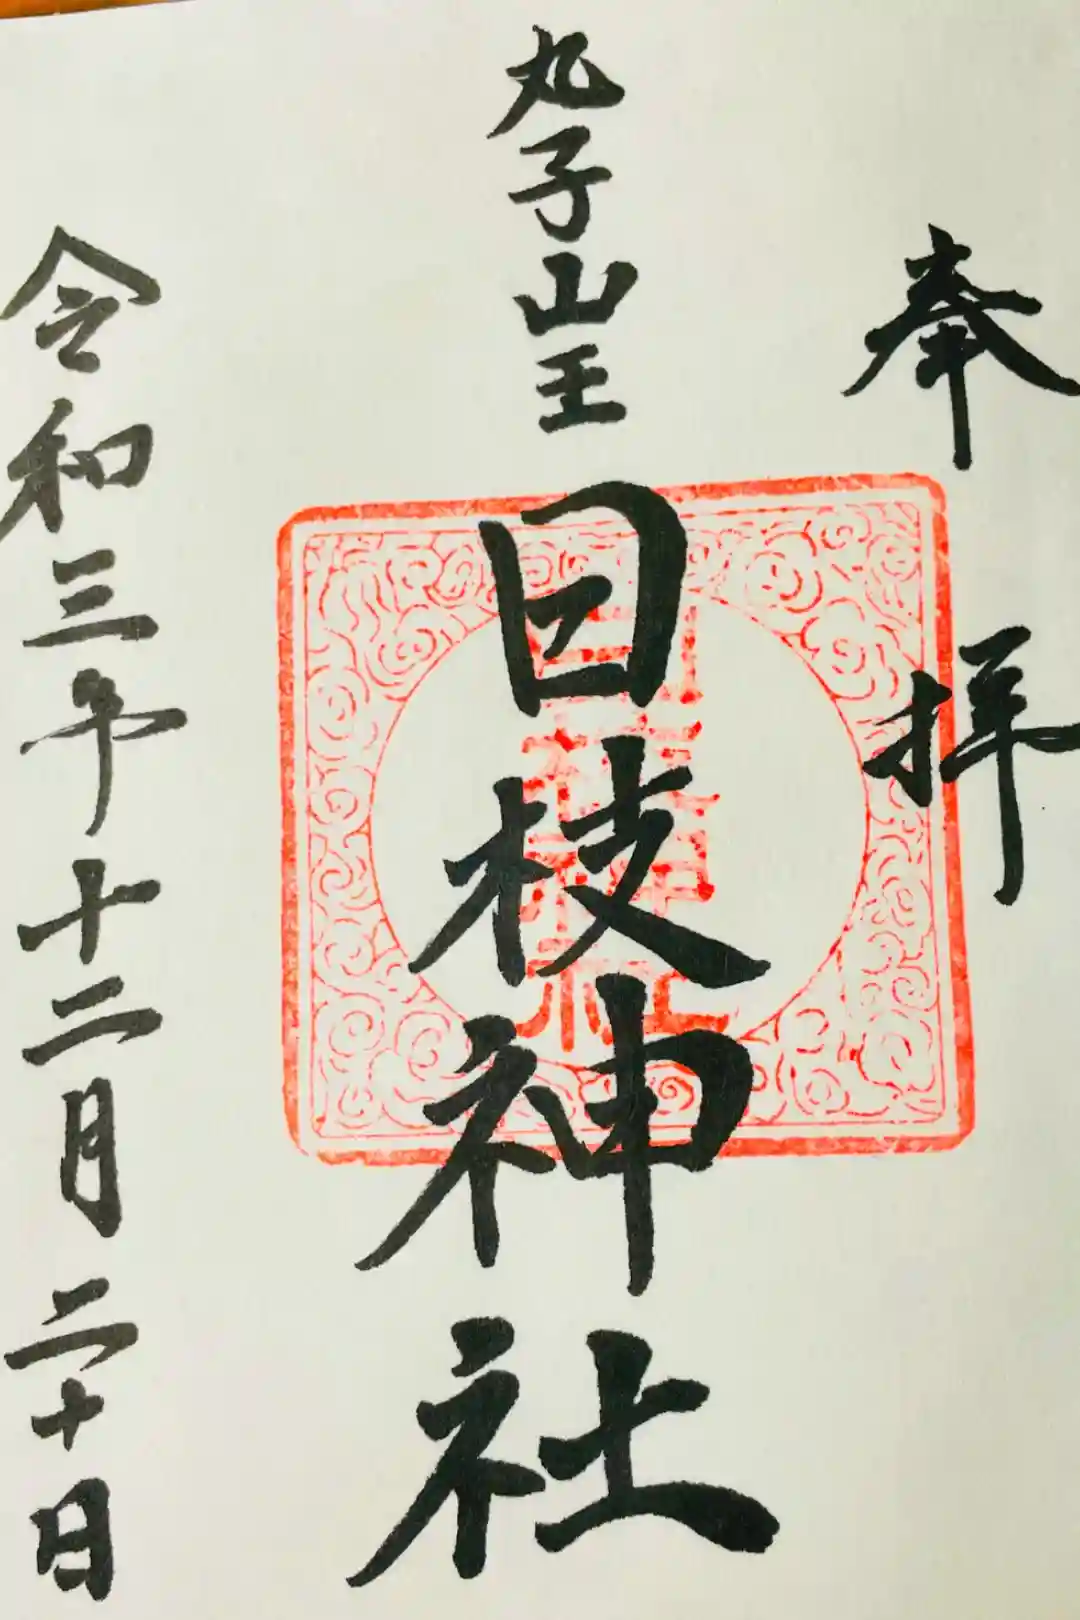 奉拝
丸子山王
日枝神社
令和三年十二月二十日